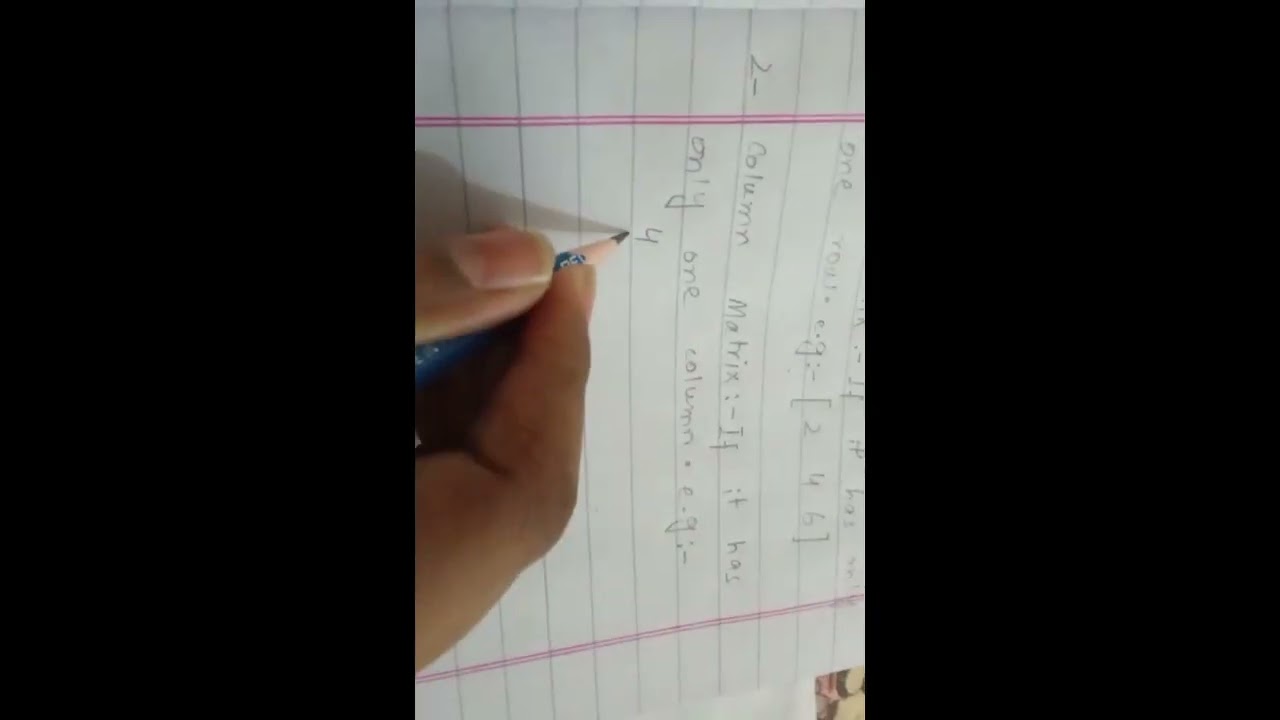 If it has only
one row. e.g:- [ 2 4 6 ]
2- Column Matrix:- If it has
only one column. e.g:-
4